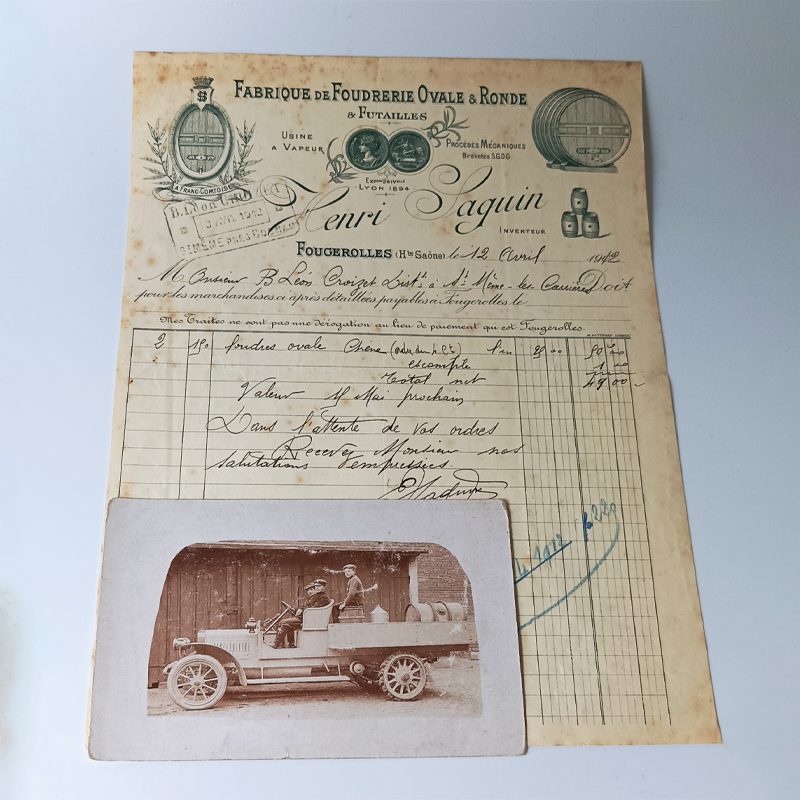 FABRIQUE DE FOUDRERIE OVALE & RONDE
& FUTAILLES
USINE
A VAPEUR
PROCÉDÉS MÉCANIQUES
Brevetés S.G.D.G
LYON 1894
LA FRANC-COMTOISE
Henri Saguin
INVENTEUR
B. Léon
AVR 1912
FOUGEROLLES (Hte Saône) le 12 Avril 1912
Monsieur B Léon Croizet Distr à St Même-les-Carrières Doit
pour les marchandises ci après détaillées payables à Fougerolles le
Mes Traites ne sont pas une dérogation au lieu de paiement qui est Fougerolles.
2 foudres ovale Chêne l'un 25 00 50
escompte 1
Total net 49 00
Valeur 15 Mai prochain
Dans l'attente de vos ordres
Recevez Monsieur nos
salutations empressées.